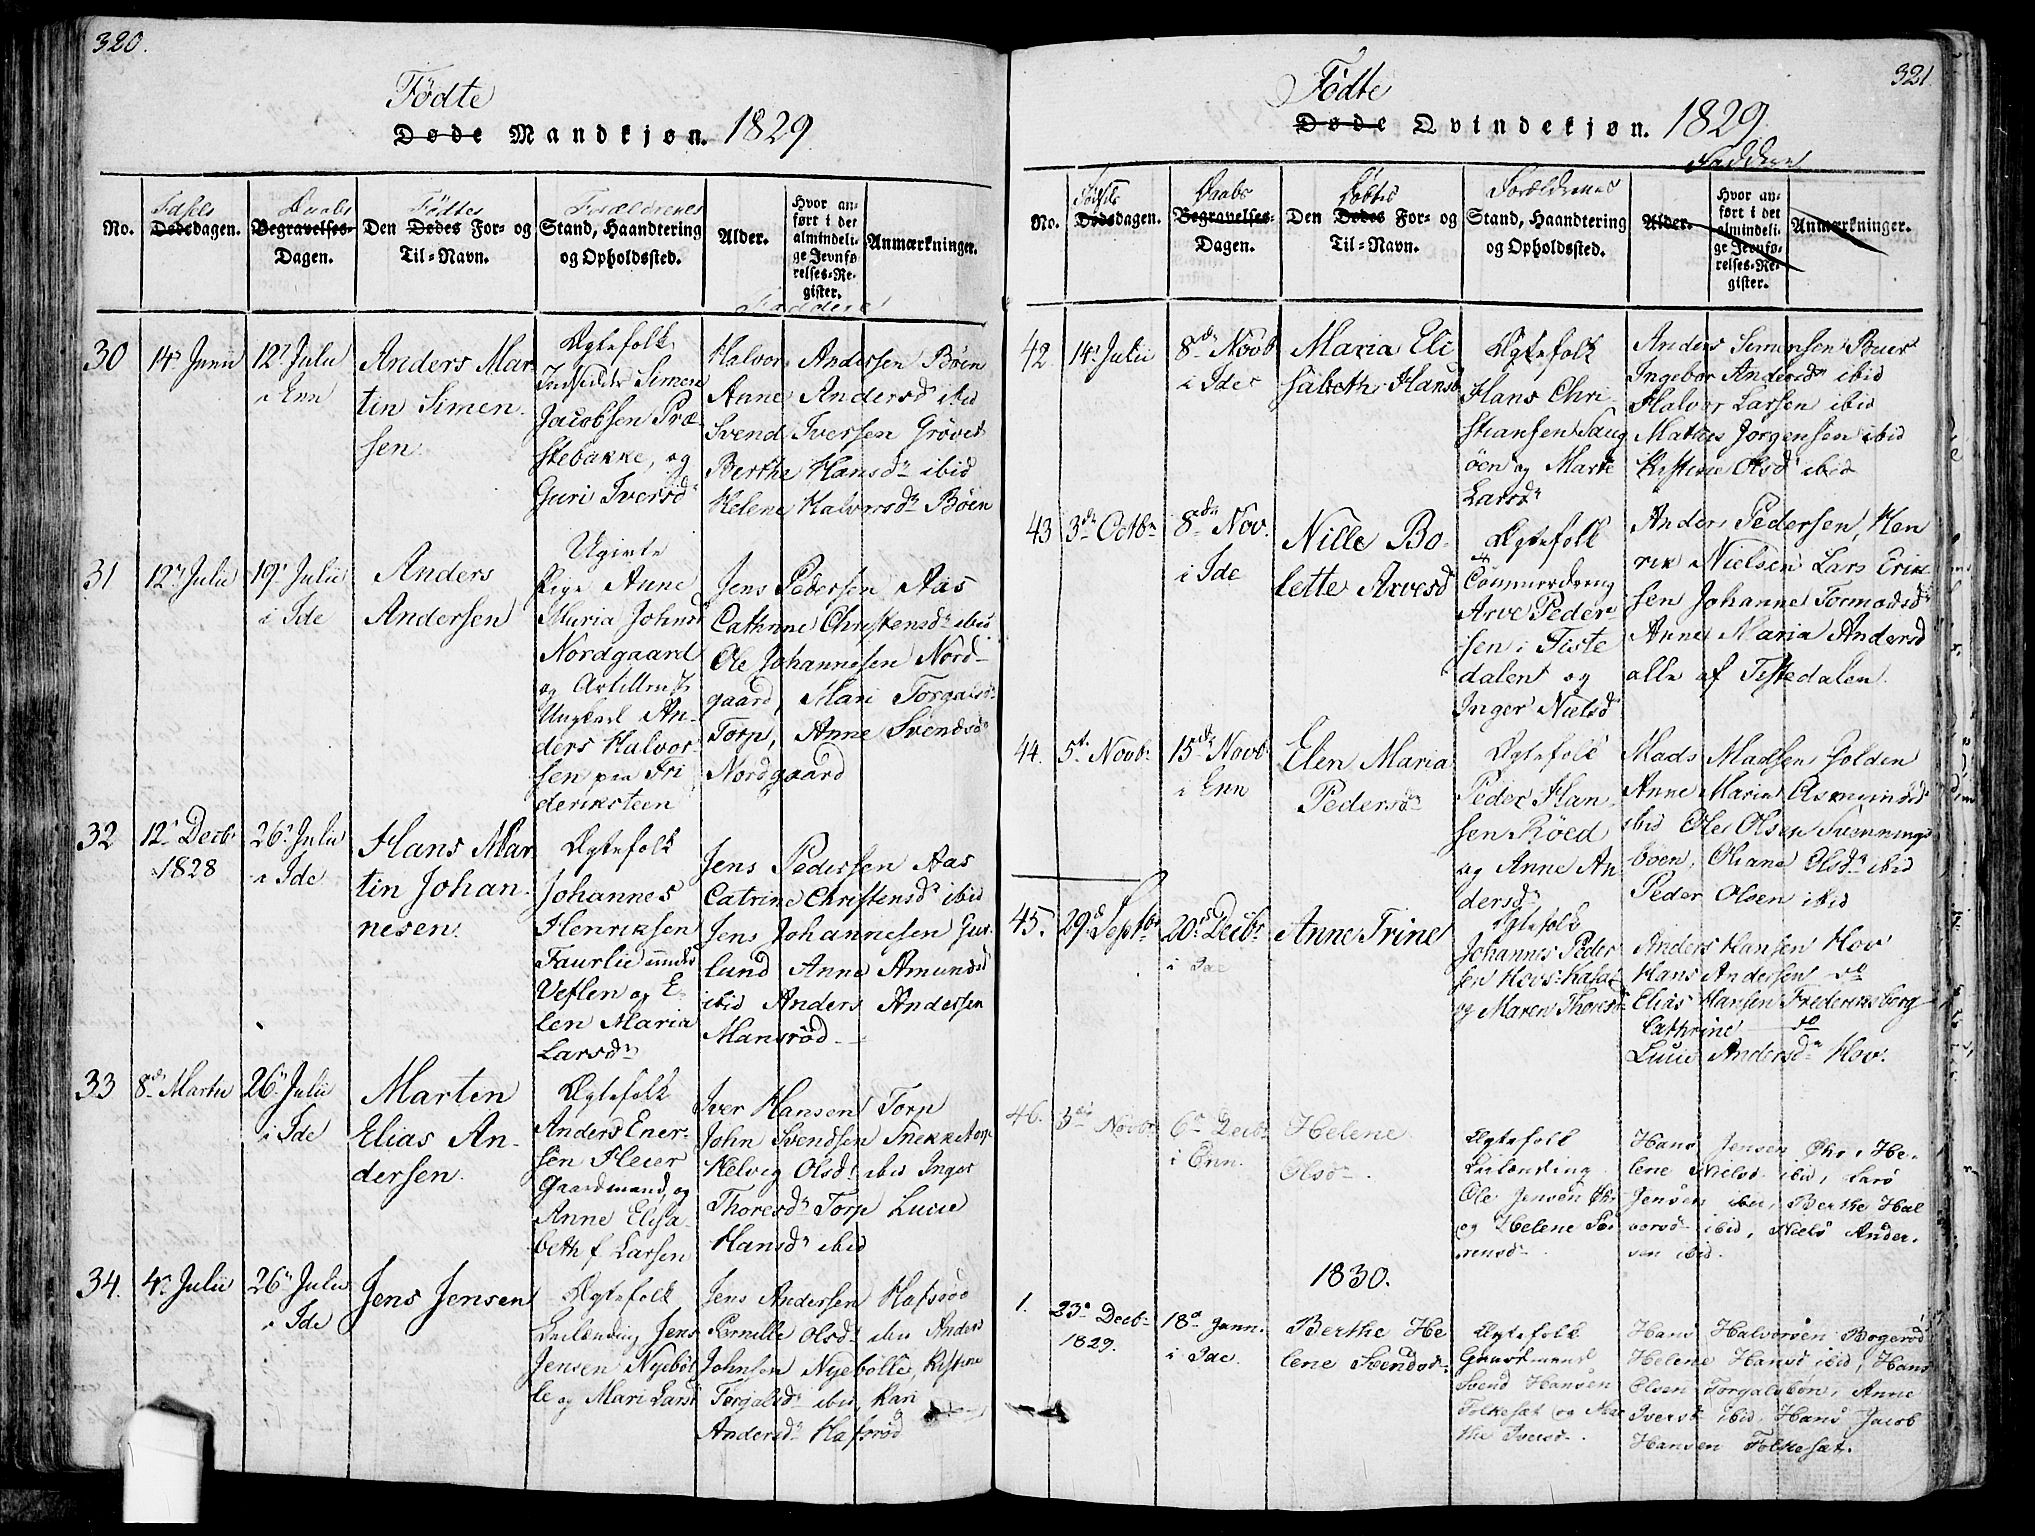 320.
Fødte
Døde Mandkjøn. 1829
No.
Fødsels
Dødsdagen.
Daabs
Begravelses-
Dagen.
Fødtes
Den Dødes For- og
Til-Navn.
Forældrenes
Stand, Haandtering
og Opholdssted.
Alder.
Hvor an-
ført i det
almindeli-
ge Jevnfø-
relses-Re-
gister.
Anmærkninger.
Faddere
30
14de Junii
12te Julii
i Enn
Anders Mar-
tin Simen-
sen.
Ægtefolk
Indsidder Simen
Jacobsen Præ-
stebakke, og
Guri Iversd
Halvor Andersen Böen
Anne Andersd ibid
Svend Iversen Gröved
Berthe Hansdr ibid
Helene Halvorsdr Böen
31
12te Julii
19de Julii
i Ide
Anders
Andersen
Ugivte
Pige Anne
Maria Johnsd
Nordgaard
og Artillerist
Ungkarl An-
ders Halvor-
sen paa Fri
deriksteen
Jens Pedersen Aas
Cathrine Christensdr ibid
Ole Johannesen Nord-
gaard, Mari Torgalsdr
Torp, Anne Svendsdr
Nordgaard
32
12te Decb.
1828
26de Julii
i Ide
Hans Mar
tin Johan-
nesen.
Ægtefolk
Johannes
Henriksen
Faurlie under
Veflen og E-
len Maria
Larsdr
Jens Pedersen Aas
Catrine Christensdr ibid
Jens Johannesen
lund Anne Amundsd
ibid Anders Andersen
Mansröd
33
8de Martii
26de Julii
i Ide
Marten
Elias An-
dersen.
Ægtefolk
Anders Ener-
sen Heier
Gaardmand, og
Anne Elisa-
beth f. Larsen
Iver Hansen Torp
John Svendsen Snekketorp
Helvig Olsdr ibid Inger
Thoresdr Torp Lucie
Hansdr ibid
34.
4de Julii
26de Julii
i Ide
Jens Jensen
Ægtefolk
Leilænding Jens
Jensen Nyeböl-
le og Mari Larsd
Jens Andersen Hafsröd
Pernille Olsdr ibid Anders
Johnsen Nyebölle, Kistine
Torgalsdr ibid, Kari
Andersdr Hafsröd
321
Fødte
Døde Qvindekjøn. 1829.
Faddere
No.
Fødsels
Dødsdagen.
Daabs
Begravelses-
Dagen.
Fødtes
Den Dødes For- og
Til-Navn.
Forældrenes
Stand, Haandtering
og Opholdssted.
Alder.
Hvor an-
ført i det
almindeli-
ge Jevnfø-
relses-Re-
gister.
Anmærkninger.
42.
14de Julii
8de Novb
i Ide
Maria Eli
sabeth Hansd
Ægtefolk
Hans Chri-
stiansen Saug
öen og Marte
Larsdr
Anders Simensen Buer
Ingebor Andersdr ibid
Halvor Larsen ibid
Mathes Jörgensen ibid
Kistine Olsd ibid
43
3de Octbr
8de Nov.
i Ide
Nille Bo-
lette Arvesd
Ægtefolk
Arve Peder-
sen i Tiste
dalen og
Inger Nielsd
Anders Pedersen, Hen
rik Nielsen Lars Erik
sen Johanne Tormodsdr
Anne Maria Andersd
alle af Tistedalen.
44.
5te Novb.
15de Novb
i Enn
Elen Maria
Pedersdr
Ægtefolk
Peder Han-
sen Röed
og Anne An
dersdr
Mads Madsen Holden
Anne Maria Asmundsd
ibid Ole Olsen Svennings
böen, Oliane Olsdr ibid
Peder Olsen ibid
45.
29de Septbr
20de Decbr
i Ide
Anne Trine
Ægtefolk
Johannes Peder
sen Hovs
og Maren Thoresdr
Anders Hansen Hov
Hans Andersen do
Elias Hansen Frederiksberg
Cathrine do
Lucie Andersdr Hov.
46.
3die Novbr
6te Decbr
i Enn.
Helene
Olsdr.
Ægtefolk
Leilænding
Ole Jensen Öhr
og Helene Sö-
rensdr
Hans Jensen Öhr, He-
lene Nielsd. ibid, Lars
Jensen ibid, Berthe Hal
vorsdr ibid, Niels Ander-
sen ibid.
1830.
1.
23de Decbr
1829.
18de Jann.
i Ide.
Berthe He
lene Svendsdr.
Ægtefolk
Gaardmand
Svend Hansen
Folkesæt og Mar
the Iversdr.
Hans Halvorsen Bogeröd
Helene Hansd ibid, Hans
Olsen Torgalsbön, Anne
Iversd ibid, Hans Jacob
Hansen Folkesæt.